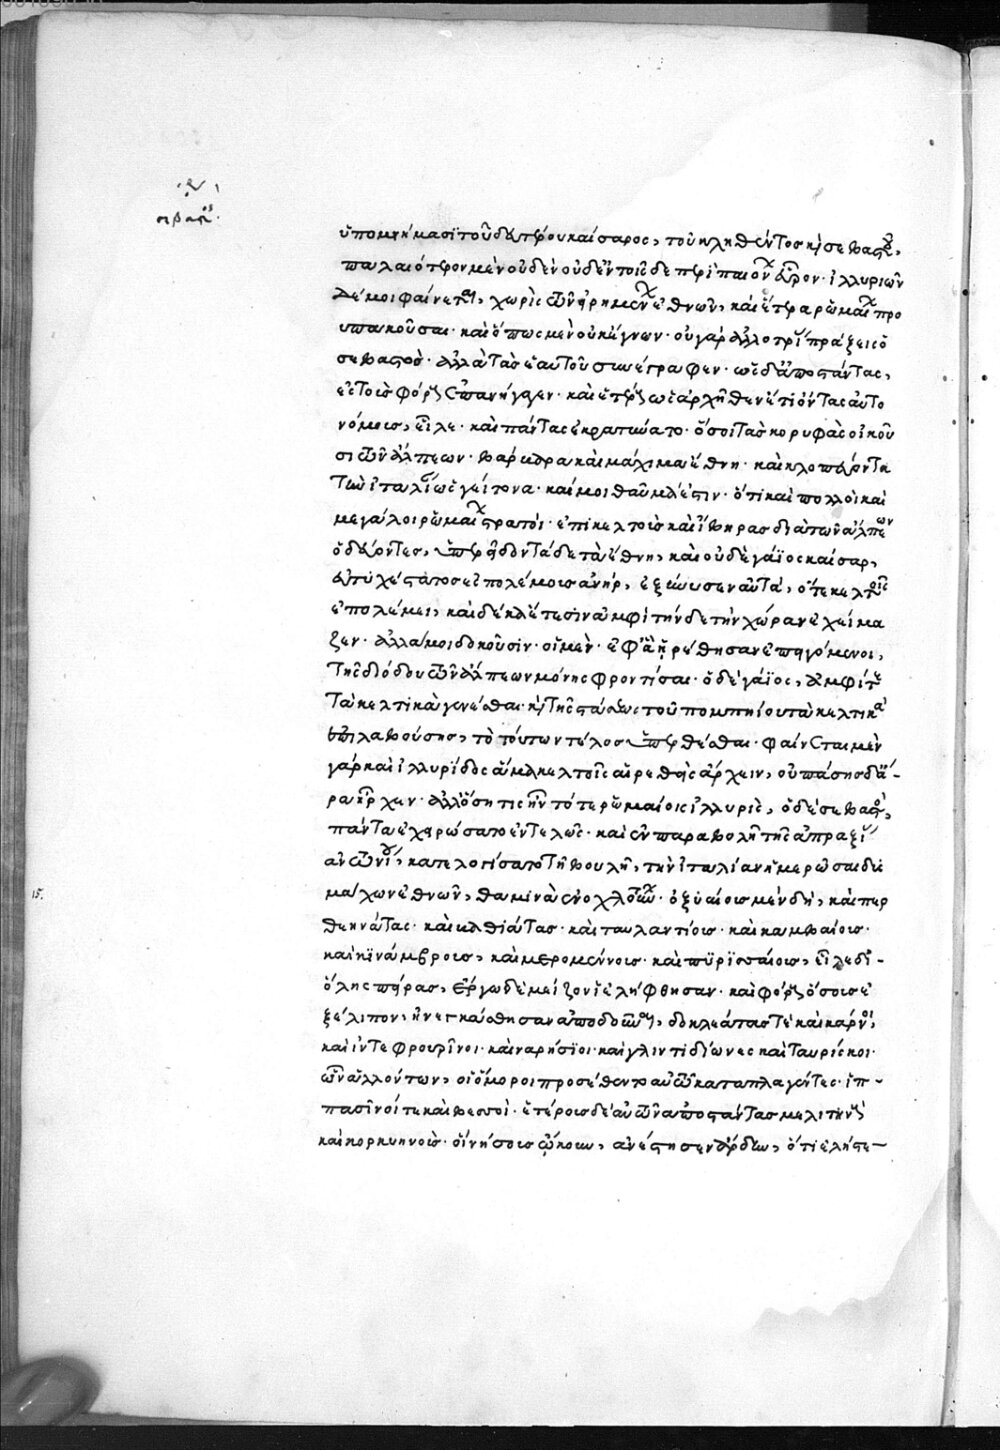 σεβαστοσ.
ὑπομνήμασι τοῦ δευτέρου καίσαρος, τοῦ κληθέντος κ(αὶ) σεβαστοῦ,
παλαιότερον μὲν οὐδὲν οὐδ' ἐν τοῖς δε περὶ παιόνων εὗρον· ἰλλυριῶν
δέ μοι φαίνεται, χωρὶς τῶν εἰρημένων ἐθνῶν, καὶ ἕτερα ῥωμαίων προ
υπακοῦσαι· καὶ ὅπως μὲν οὐκ ἔγνων· οὐ γὰρ ἀλλοτρίας πράξεις ὁ
σεβαστὸσ· ἀλλὰ τὰσ ἑαυτοῦ συνέγραφεν· ὡς δ' ἀποστάντας,
ἐς τοὺσ φόρους ἐπανήγαγεν· καὶ ἑτέρους ὡς ἀρχῆθεν ἔτι ὄντας αὐτο
νόμους, εἷλε· καὶ πάντας ἐκρατύνατο· ὅσοι τὰσ κορυφὰς οἰκοῦ
σι τῶν ἄλπεων· βάρβαρα καὶ μάχιμα ἔθνη· καὶ κλοπεύοντα
τὴν ἰταλίαν ὡς γείτονα· καί μοι θαῦμά ἐστιν· ὅτι καὶ πολλοὶ καὶ
μεγάλοι ῥωμαίων στρατοὶ· ἐπὶ κελτοὺσ καὶ ἴβηρασ διὰ τῶν ἄλπεων
ὁδεύοντες, ὑπερεῖδον τάδε τὰ ἔθνη, καὶ οὐδὲ γάϊος καῖσαρ,
εὐτυχέστατος ἐς πολέμουσ ἀνήρ, ἐξήνυσεν αὐτὰ, ὅτε κελτοῖς
ἐπολέμει, καὶ δέκα ἔτεσιν ἀμφὶ τήνδε τὴν χώραν ἐχείμα
ζεν· ἀλλά μοι δοκοῦσιν· οἱ μὲν· ἐφ' ἃ ᾑρέθησαν ἐπειγόμενοι,
τῆς διόδου τῶν ἄλπεων μόνης φροντίσαι· ὁ δὲ γάϊος, ἀμφί τε
τὰ κελτικὰ γενέσθαι· κ(αὶ) τῆς στάσεως τοῦ πομπηίου τὰ κελτικὰ
ἐπιλαβούσης, τὸ τούτων τέλος ὑπερθέσθαι· φαίνεται μὲν
γὰρ καὶ ἰλλυρίδος ἅμα κελτοῖς αἱρεθῆς ἄρχειν, οὐ πάσης δὲ ἄ-
ρα ἦρχεν· ἀλλ' ὅση τις ἦν τότε ῥωμαίοις ἰλλυρὶς, ὁ δὲ σεβαστὸς,
πάντα ἐχειρώσατο ἐντελῶς· καὶ ἐν παραβολῇ τῆς ἀπραξί
ας ἀντωνίου, κατελογίσατο τῇ βουλῇ, τὴν ἰταλίαν ἡμερῶσαι δυσ
μάχων ἐθνῶν, θαμινὰ ἐνοχλούντων· ὀξυαίουσ μὲν δὴ, καὶ περ
θεηνάτας· καὶ βαθιάτασ· καὶ ταυλαντίουσ· καὶ καμβαίουσ·
καὶ κινάμβρουσ, καὶ μερομέννουσ· καὶ πυρισσαίουσ, εἷλε δι' -
ὅλης πείρασ, ἔργῳ δὲ μείζονι ἐλήφθησαν· καὶ φόρους ὅσουσ ἐ
ξέλιπον, ἠναγκάσθησαν ἀποδοῦναι, δοκλεᾶταί τε καὶ κάρνοι,
καὶ ἰντερφρουρῖνοι· καὶ ναρήσϊοι· καὶ γλιντιδίωνες καὶ ταυρίσκοι·
ὧν ἁλόντων, οἱ ὅμοροι προσέθεντο αὐτῷ καταπλαγέντες· ἱπ-
πασῖνοί τε καὶ βεσσοὶ· ἑτέρους δὲ αὐτῶν ἀποστάντασ μελιτηνοὺς
καὶ κορκυηνοὺσ· οἳ νήσους ᾤκουν, ἀνέστησεν ἄρδην, ὅτι ἐλῄστε-
15.